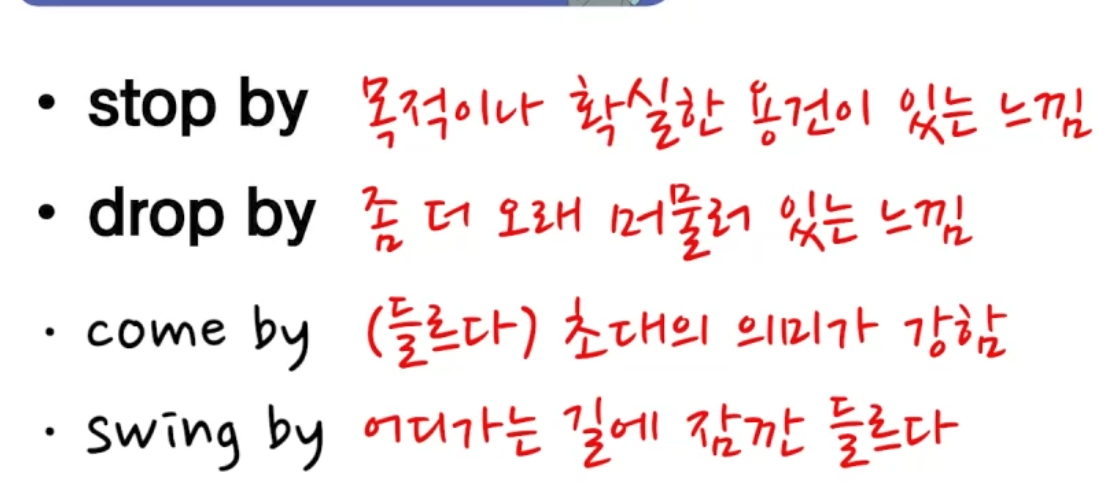 • stop by 목적이나 확실한 용건이 있는 느낌
• drop by 좀 더 오래 머물러 있는 느낌
· come by (들르다) 초대의 의미가 강함
· swing by 어디가는 길에 잠깐 들르다